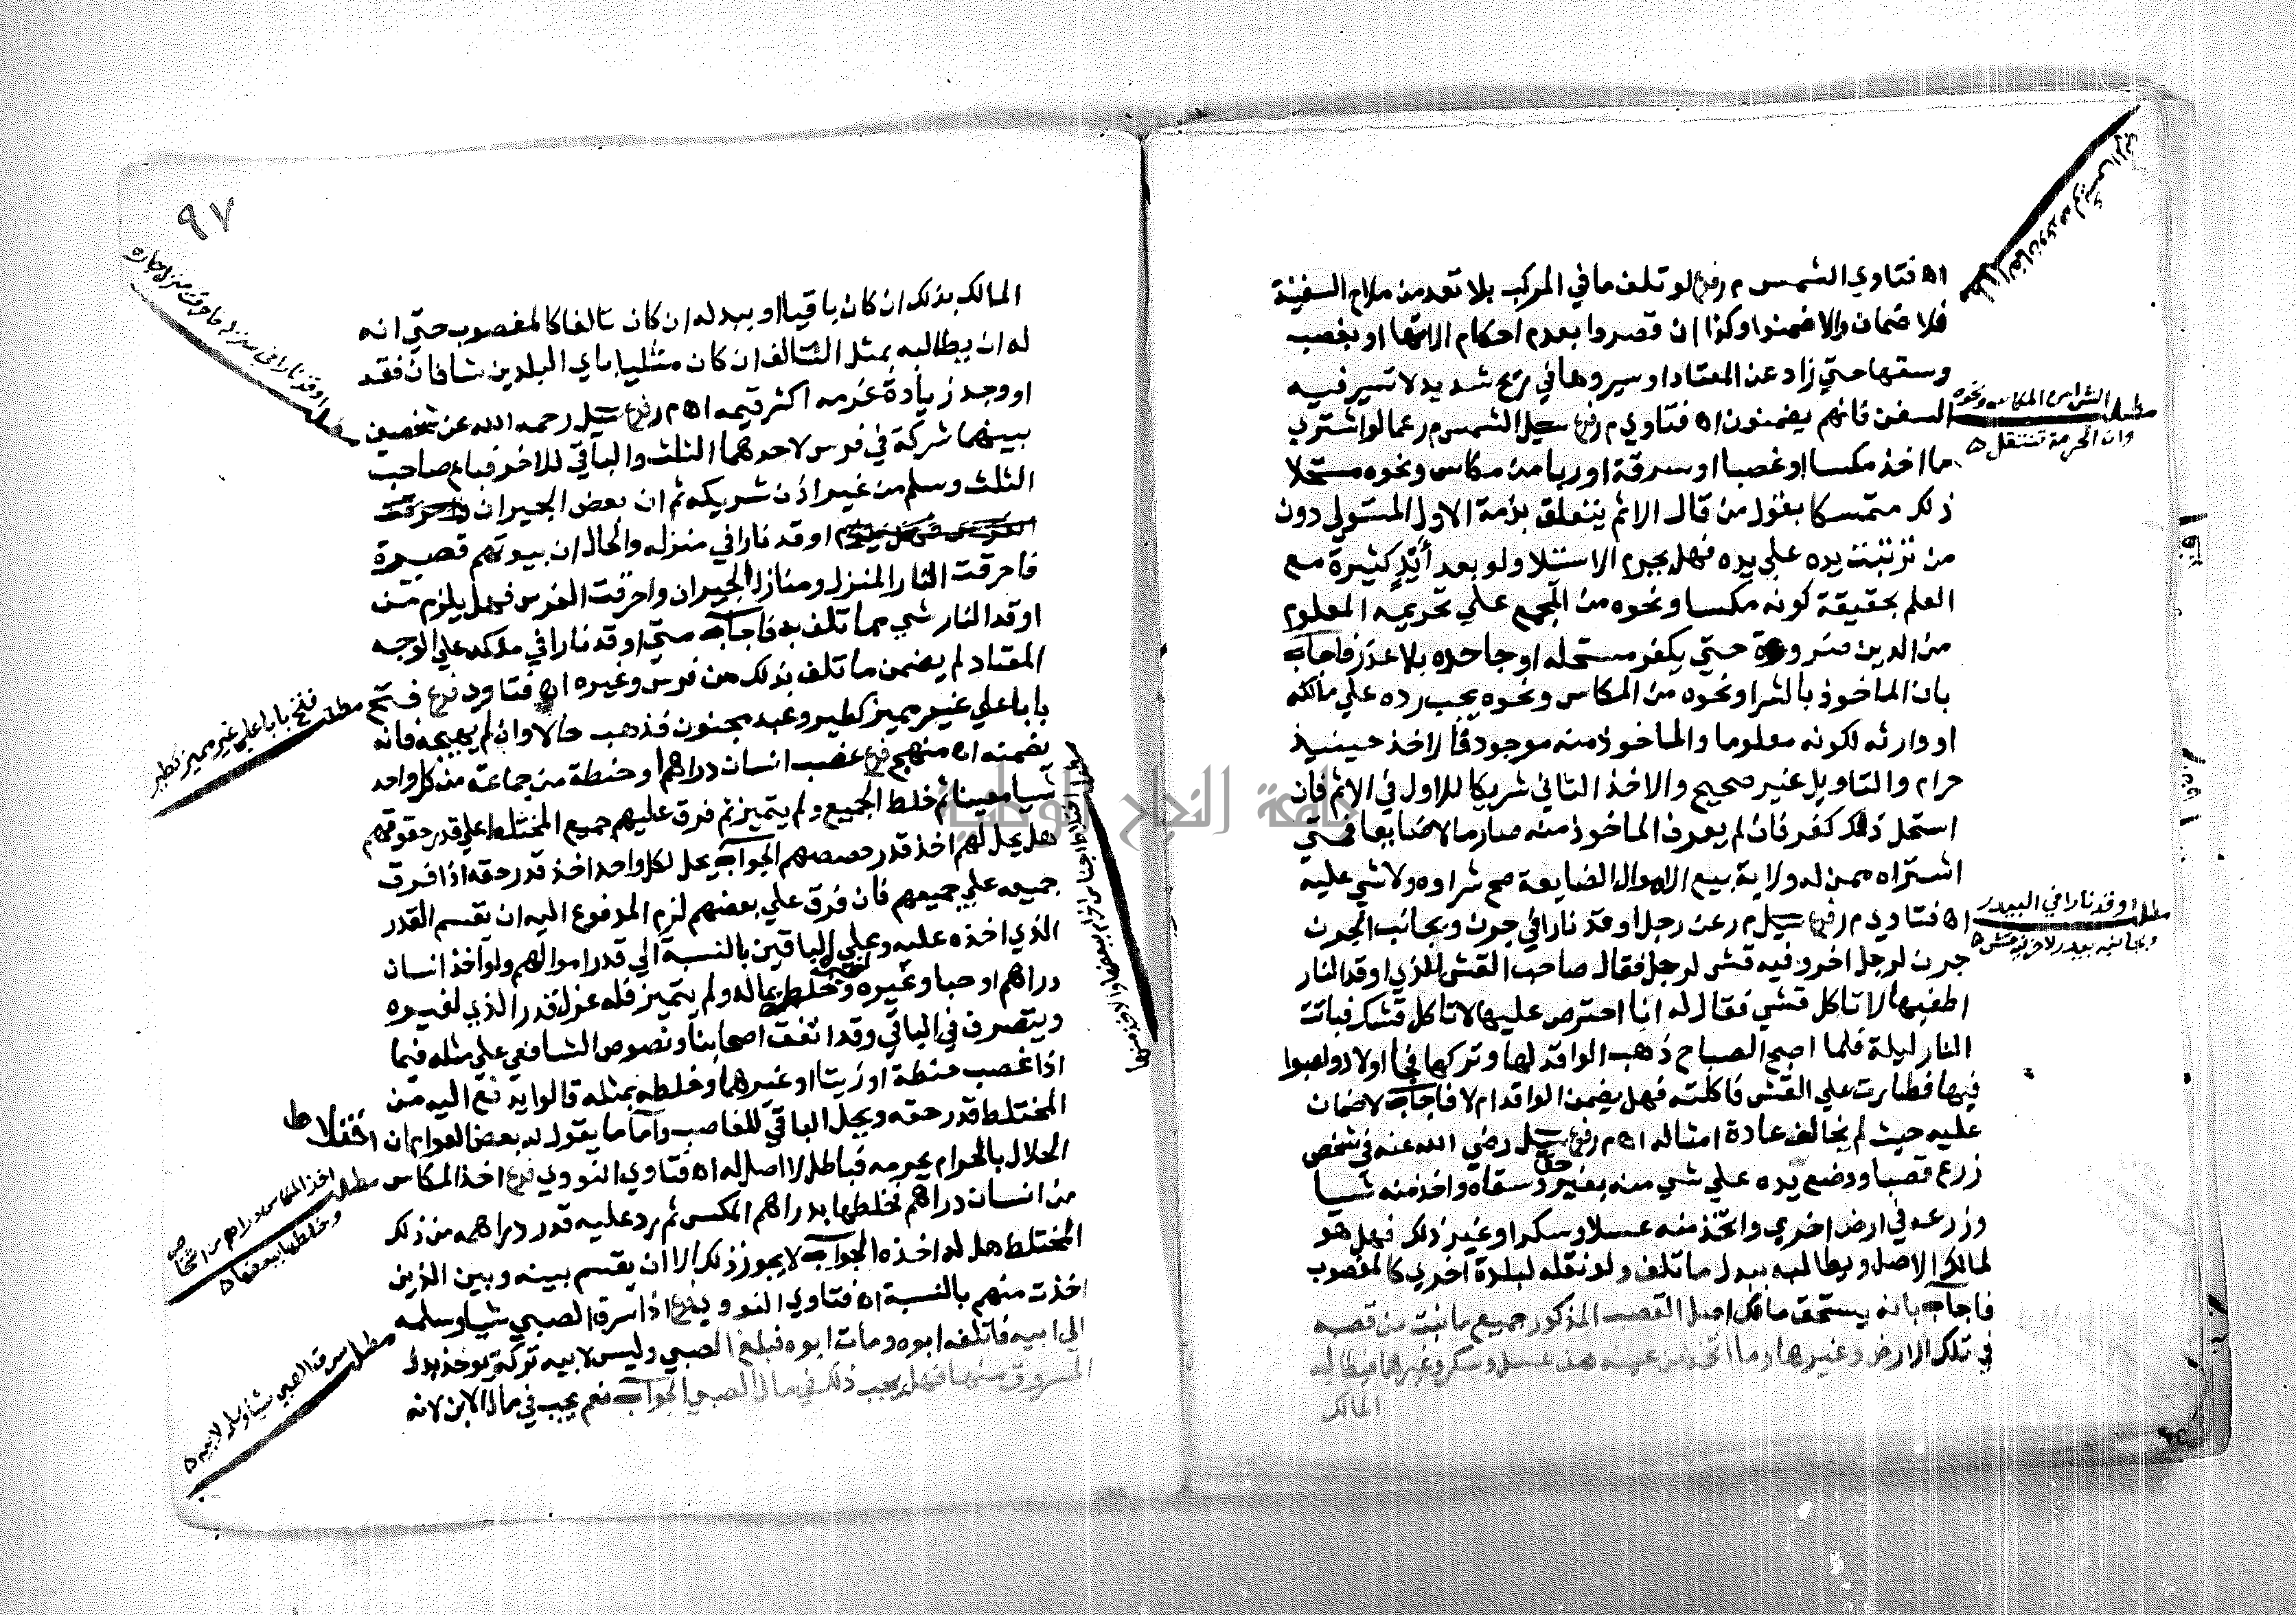 اه فتاوي الشمس م ر فرع لو تلف ما في المركب بلا تعد من ملاح السفينة
فلا ضمان والا ضمنوا وكذا ان قصروا بعدم احكام الاتها او بغصب
وسقها حتي زاد عن المعتاد او سيروها في ريح شديد لا تسير فيه
السفن فانهم يضمنون اه فتاوي م ر فرع سيل الشمس م ر عما لو اشتري
ما اخذ مكسا او غصبا او سرقة او ربا من مكاس ونحوه مستحلا
ذلك متمسكا بقول من قال الاثم يتعلق بذمة الاول المستولي دون
من ترتبت يده علي يده فهل يحرم الاستيلا ولو بعد أيد كثيرة مع
العلم بحقيقة كونه مكسا ونحوه من المجمع علي تحريمه المعلوم
من الدين ضرورة حتي يكفر مستحله او جاحده بلا عذر فاجاب
بان الماخوذ بالشرا ونحوه من المكاس ونحوه يجب رده علي مالكه
او وارثه لكونه معلوما والماخوذ منه موجود فالاخذ حينيذ
حرام والتاويل غير صحيح والاخذ الثاني شريكا للاول في الاثم فان
استحل ذلك كفر فان لم يعرف الماخوذ منه صار مالا ضايعا فمتي
اشتراه ممن له ولاية بيع الاموال الضايعة صح شراوه ولا شي عليه
اه فتاوي م ر فرع سيل م ر عن رجل اوقد نارا في جرن وبجانب الجرن
جرن لرجل اخر وفيه قش لرجل فقال صاحب القش للذي اوقد النار
اطفيها لا تاكل قشي فقال له انا احترص عليها لا تاكل قشك فباتت
النار ليلة فلما اصبح الصباح ذهب الواقد لها وتركها فجا اولاد ولعبوا
فيها فطارت علي القش فاكلته فهل يضمن الواقد ام لا فاجاب لا ضمان
عليه حيث لم يخالف عادة امثاله اه م ر فرع سيل رضي الله عنه في شخص
زرع قصبا ووضع يده علي شي منه بغير حق وسقاه واخذ منه شيا
وزرعه في ارض اخري واتخذ منه عسلا وسكرا وغير ذلك فهل هو
لمالك الاصل ويطالبه ببدل ما تلف ولو نقله لبلدة اخري كالمغصوب
فاجاب بانه يستحق مالك اصل القصب المذكور جميع ما نبت من قصبه
في تلك الارض وغيرها وما اتخذ من عينه من عسل وسكر وغيرهما فيطالبه
المالك
مطلب الشرا من المكاس ونحوه
وان الحرمة تنتقل ه
مطلب اوقد نارا في البيدر
وبجانبه بيدر لاخر فيه قش ه
٩٧
المالك بذلك ان كان باقيا او ببدله ان كان تالفا كالمغصوب حتي انه
له ان يطالبه بمثل التالف ان كان مثليا باي البلدين شا فان فقد
او وجد زيادة غرمه اكثر قيمه اه م ر فرع سيل رحمه الله عن شخصين
بينهما شركة في فرس لاحدهما الثلث والباقي للاخر فباع صاحب
الثلث وسلم من غير اذن شريكه ثم ان بعض الجيران
اوقد نارا في منزله والحال ان بيوتهم قصيرة
فاحرقت النار المنزل ومنازل الجيران واحرقت الفرس فهل يلزم من
اوقد النار شي مما تلف به فاجاب متي اوقد نارا في ملكه علي الوجه
المعتاد لم يضمن ما تلف بذلك من فرس وغيره اه فتاوي فرع فتح
بابا علي غير مميز كطير وعبد مجنون فذهب حالا وان لم يهيجه فانه
يضمنه اه منهج فرع غصب انسان دراهم او حنطة من جماعة من كل واحد
شيا معينا ثم خلط الجميع ولم يتميز ثم فرق عليهم جميع المختلط علي قدر حقوقهم
هل يحل لهم اخذ قدر حصصهم الجواب يحل لكل واحد اخذ قدر حقه اذا فرق
جميعه علي جميعهم فان فرق علي بعضهم لزم المدفوع اليه ان يقسم القدر
الذي اخذه عليه وعلي الباقين بالنسبة الي قدر اموالهم ولو اخذ انسان
دراهم او حبا وغيره وخلط بماله ولم يتميز فله عزل قدر الذي لغيره
ويتصرف في الباقي وقد اتفق اصحابنا ونصوص الشافعي علي مثله فيما
اذا غصب حنطة او زيتا او غيرهما وخلطه بمثله قالوا يدفع اليه من
المختلط قدر حقه ويحل الباقي للغاصب واما ما يقوله بعض العوام ان اختلاط
الحلال بالحرام يحرمه فباطل لا اصل له اه فتاوي النووي فرع اخذ المكاس
من انسان دراهم فخلطها بدراهم المكس ثم رد عليه قدر دراهمه من ذلك
المختلط هل له اخذه الجواب لا يجوز ذلك الا ان يقسم بينه وبين الذين
اخذت منهم بالنسبة اه فتاوي النووي فرع اذا سرق الصبي شيا وسلمه
الي ابيه فاتلفه ابوه ومات ابوه فبلغ الصبي وليس لابيه تركة يوخذ بدل
المسروق منها فهل يجب ذلك في مال الصبي الجواب نعم يجب في مال الابن لانه
مطلب اوقد نارا في منزله فاحرقت منزل جاره
مطلب فتح بابا علي غير مميز كطير
مطلب اخذ المكاس دراهم من اشخاص
وخلطها ببعضها ه
مطلب سرق الصبي شيا وسلمه لابيه ه
جامعة النجاح الوطنية